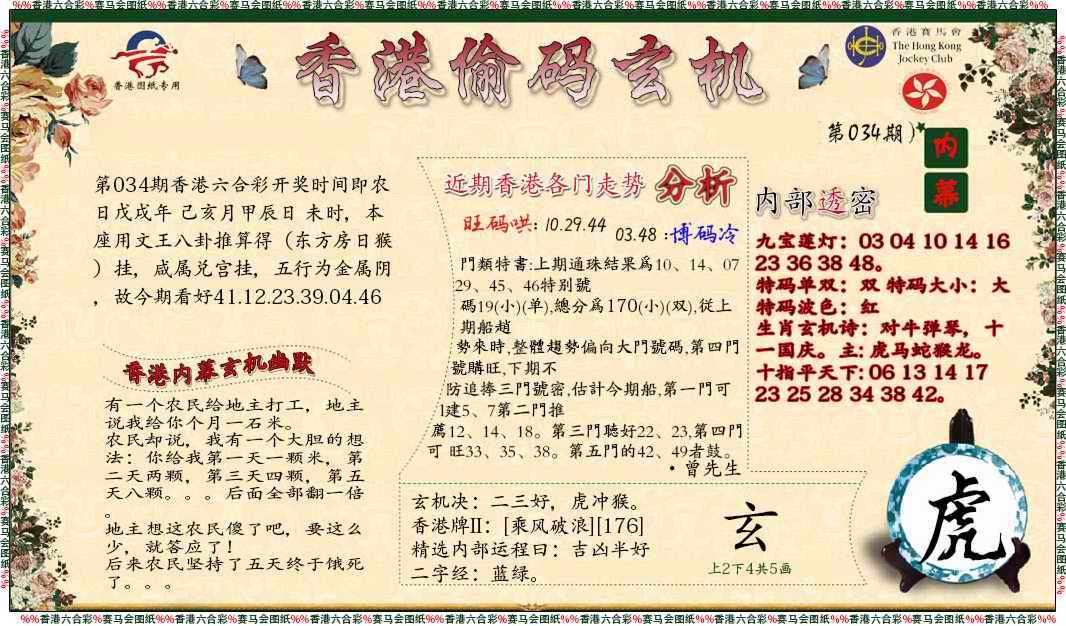 %%香港六合彩%赛马会图纸%%香港六合彩%赛马会图纸%%香港六合彩%赛马会图纸%%香港六合彩%赛马会图纸%%香港六合彩%赛马会图纸%%香港六合彩%赛马会图纸%%香港六合彩%%
香港图纸专用
香港偷码玄机
香港賽馬會
The Hong Kong
Jockey Club
第034期)
内
幕
第034期香港六合彩开奖时间即农
日戊戌年 己亥月甲辰日 未时，本
座用文王八卦推算得（东方房日猴
）挂，咸属兑宫挂，五行为金属阴
，故今期看好41.12.23.39.04.46
香港内幕玄机幽默
有一个农民给地主打工，地主
说我给你个月一石米。
农民却说，我有一个大胆的想
法：你给我第一天一颗米，第
二天两颗，第三天四颗，第五
天八颗。。。后面全部翻一倍
。
地主想这农民傻了吧，要这么
少，就答应了！
后来农民坚持了五天终于饿死
了。。。
近期香港各门走势 分析
旺码哄: 10.29.44
03.48 :博码冷
門類特書:上期通珠結果爲10、14、07
29、45、46特别號
碼19(小)(单),總分爲170(小)(双),從上
期船趙
勢來時,整體趨勢偏向大門號碼,第四門
號購旺,下期不
防追捧三門號密,估計今期船,第一門可
1建5、7第二門推
薦12、14、18。第三門聽好22、23,第四門
可 旺33、35、38。第五門的42、49者鼓。
·曾先生
内部透密
九宝莲灯：03 04 10 14 16
23 36 38 48。
特码单双：双 特码大小：大
特码波色：红
生肖玄机诗：对牛弹琴，十
一国庆。主: 虎马蛇猴龙。
十指平天下: 06 13 14 17
23 25 28 34 38 42。
玄机决：二三好，虎冲猴。
香港牌II：[乘风破浪][176]
精选内部运程曰：吉凶半好
二字经：蓝绿。
玄
上2下4共5画
虎
%%香港六合彩%赛马会图纸%%香港六合彩%赛马会图纸%%香港六合彩%赛马会图纸%%香港六合彩%赛马会图纸%%香港六合彩%赛马会图纸%%香港六合彩%赛马会图纸%%香港六合彩%%